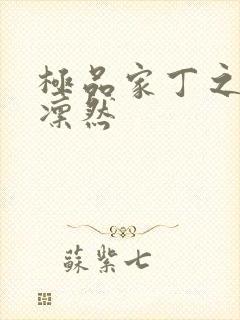 極品家丁之
凜然
蘇紫七